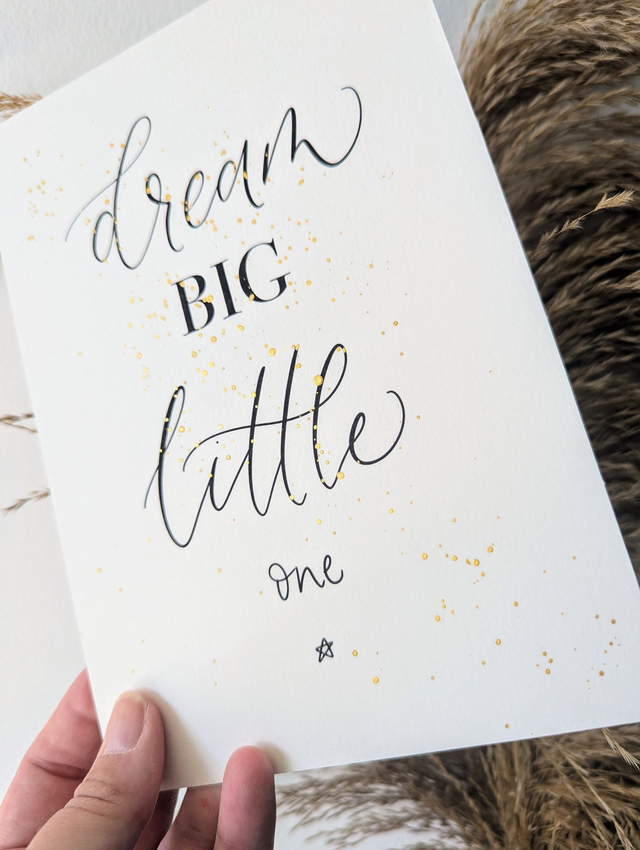 dream
BIG
little
one